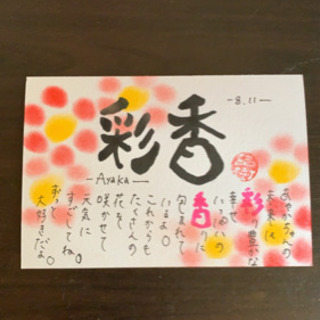 彩香
-Ayaka-
-8.11-
あやかちゃんの
未来は
彩り豊かな
幸せ
いっぱいの
香りに
包まれて
いるよ。
これからも
たくさんの
花を
咲かせて
元気に
すごしてね。
ずっと
大好きだよ。